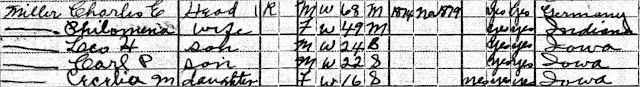 Miller Charles C Head R M W 68 M 1874 Na 1879 yes yes Germany
— Philomena wife F W 49 M yes yes Indiana
— Leo H son M W 24 S yes yes Iowa
— Carl P son M W 22 S yes yes Iowa
— Cecelia M daughter F W 16 S yes yes yes Iowa